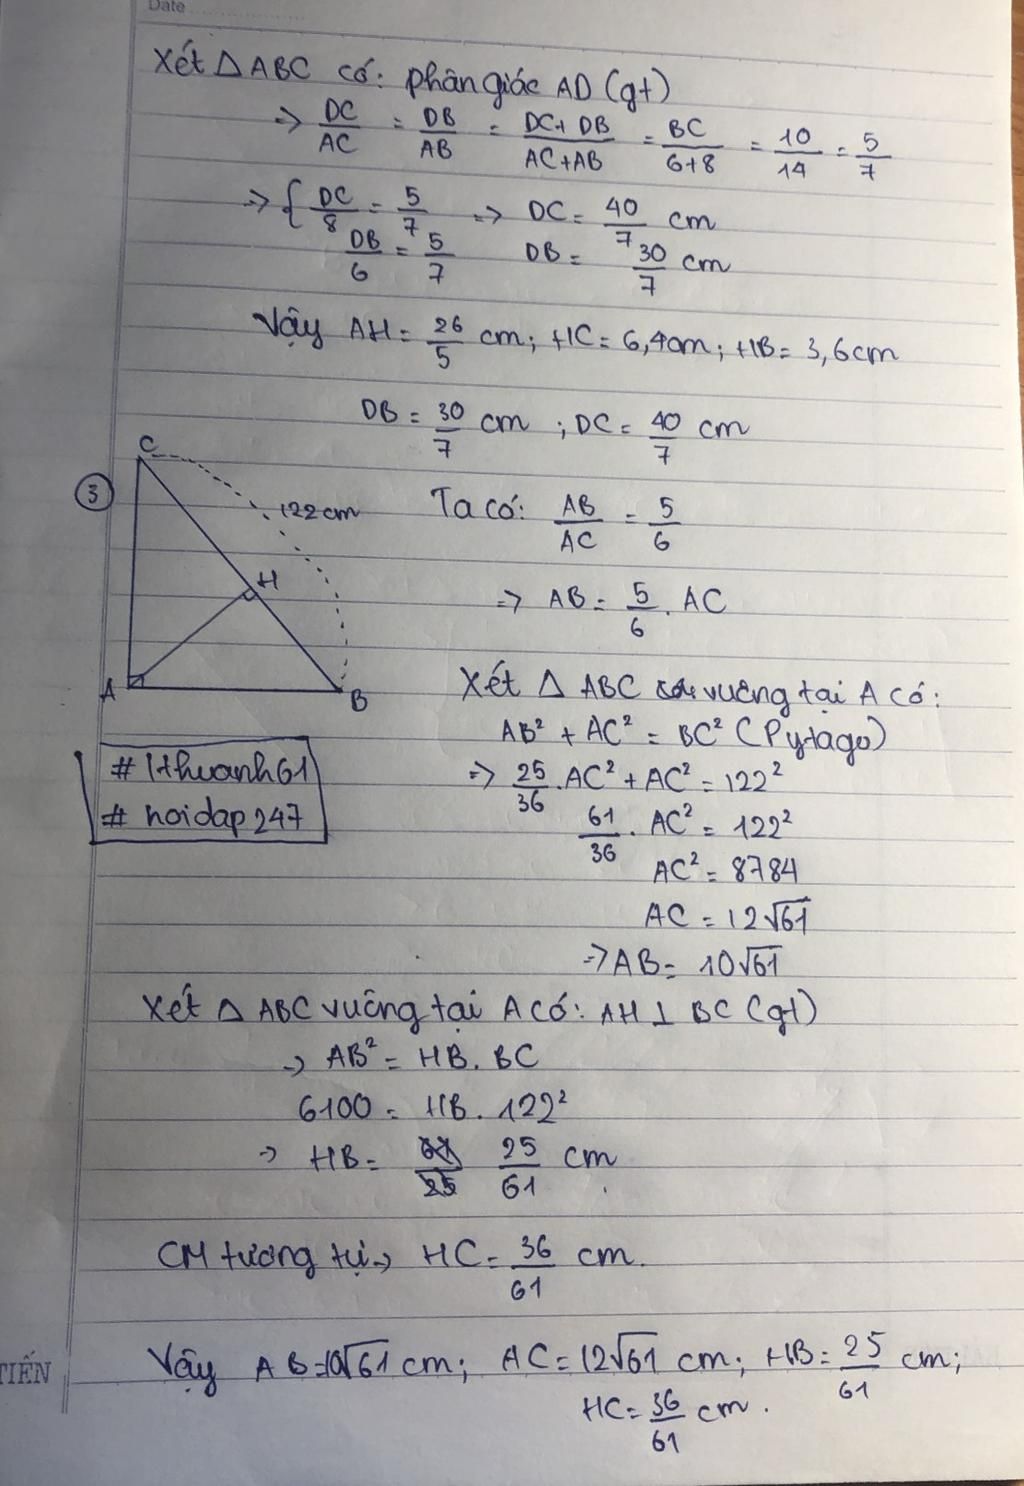 Date
Xét △ABC có: phân giác AD (gt)
=> DC/AC = DB/AB = DC+DB/AC+AB = BC/6+8 = 10/14 = 5/7
=> { DC/8 = 5/7 => DC = 40/7 cm
DB/6 = 5/7 DB = 30/7 cm
Vậy AH = 26/5 cm; HC = 6,4cm; HB = 3,6cm
DB = 30/7 cm; DC = 40/7 cm
C
3
122cm
Ta có: AB/AC = 5/6
H
=> AB = 5/6 . AC
A
B
Xét △ ABC vuông tại A có:
AB² + AC² = BC² (Pytago)
# 1thuanh61
=> 25/36 . AC² + AC² = 122²
# hoidap247
61/36 . AC² = 122²
AC² = 8784
AC = 12√61
=> AB = 10√61
Xét △ ABC vuông tại A có: AH ⊥ BC (gt)
=> AB² = HB. BC
6100 = HB. 122²
=> HB = 25/61 cm
CM tương tự => HC = 36/61 cm.
TIẾN
Vậy AB = 10√61 cm; AC = 12√61 cm; HB = 25/61 cm;
HC = 36/61 cm.